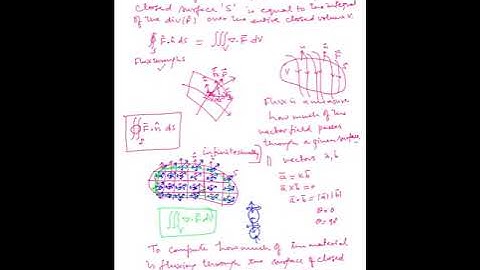 closed surface 'S' is equal to the integral
of the div(F) over the entire closed volume V.
∮∮ F̄·n̂ ds = ∭ ∇·F̄ dV
S
V
Flux is a measure
how much of the
vector field passes
through a given surface.
∯ F̄·n̂ ds
S
infinitesimally
vectors a, b
ā = k b̄
ā × b̄ = 0
ā · b̄ = |ā| |b̄|
θ = 0
θ = 90
∭ ∇·F̄ dV
V
To compute how much of the material
is fluxing through the surface of closed